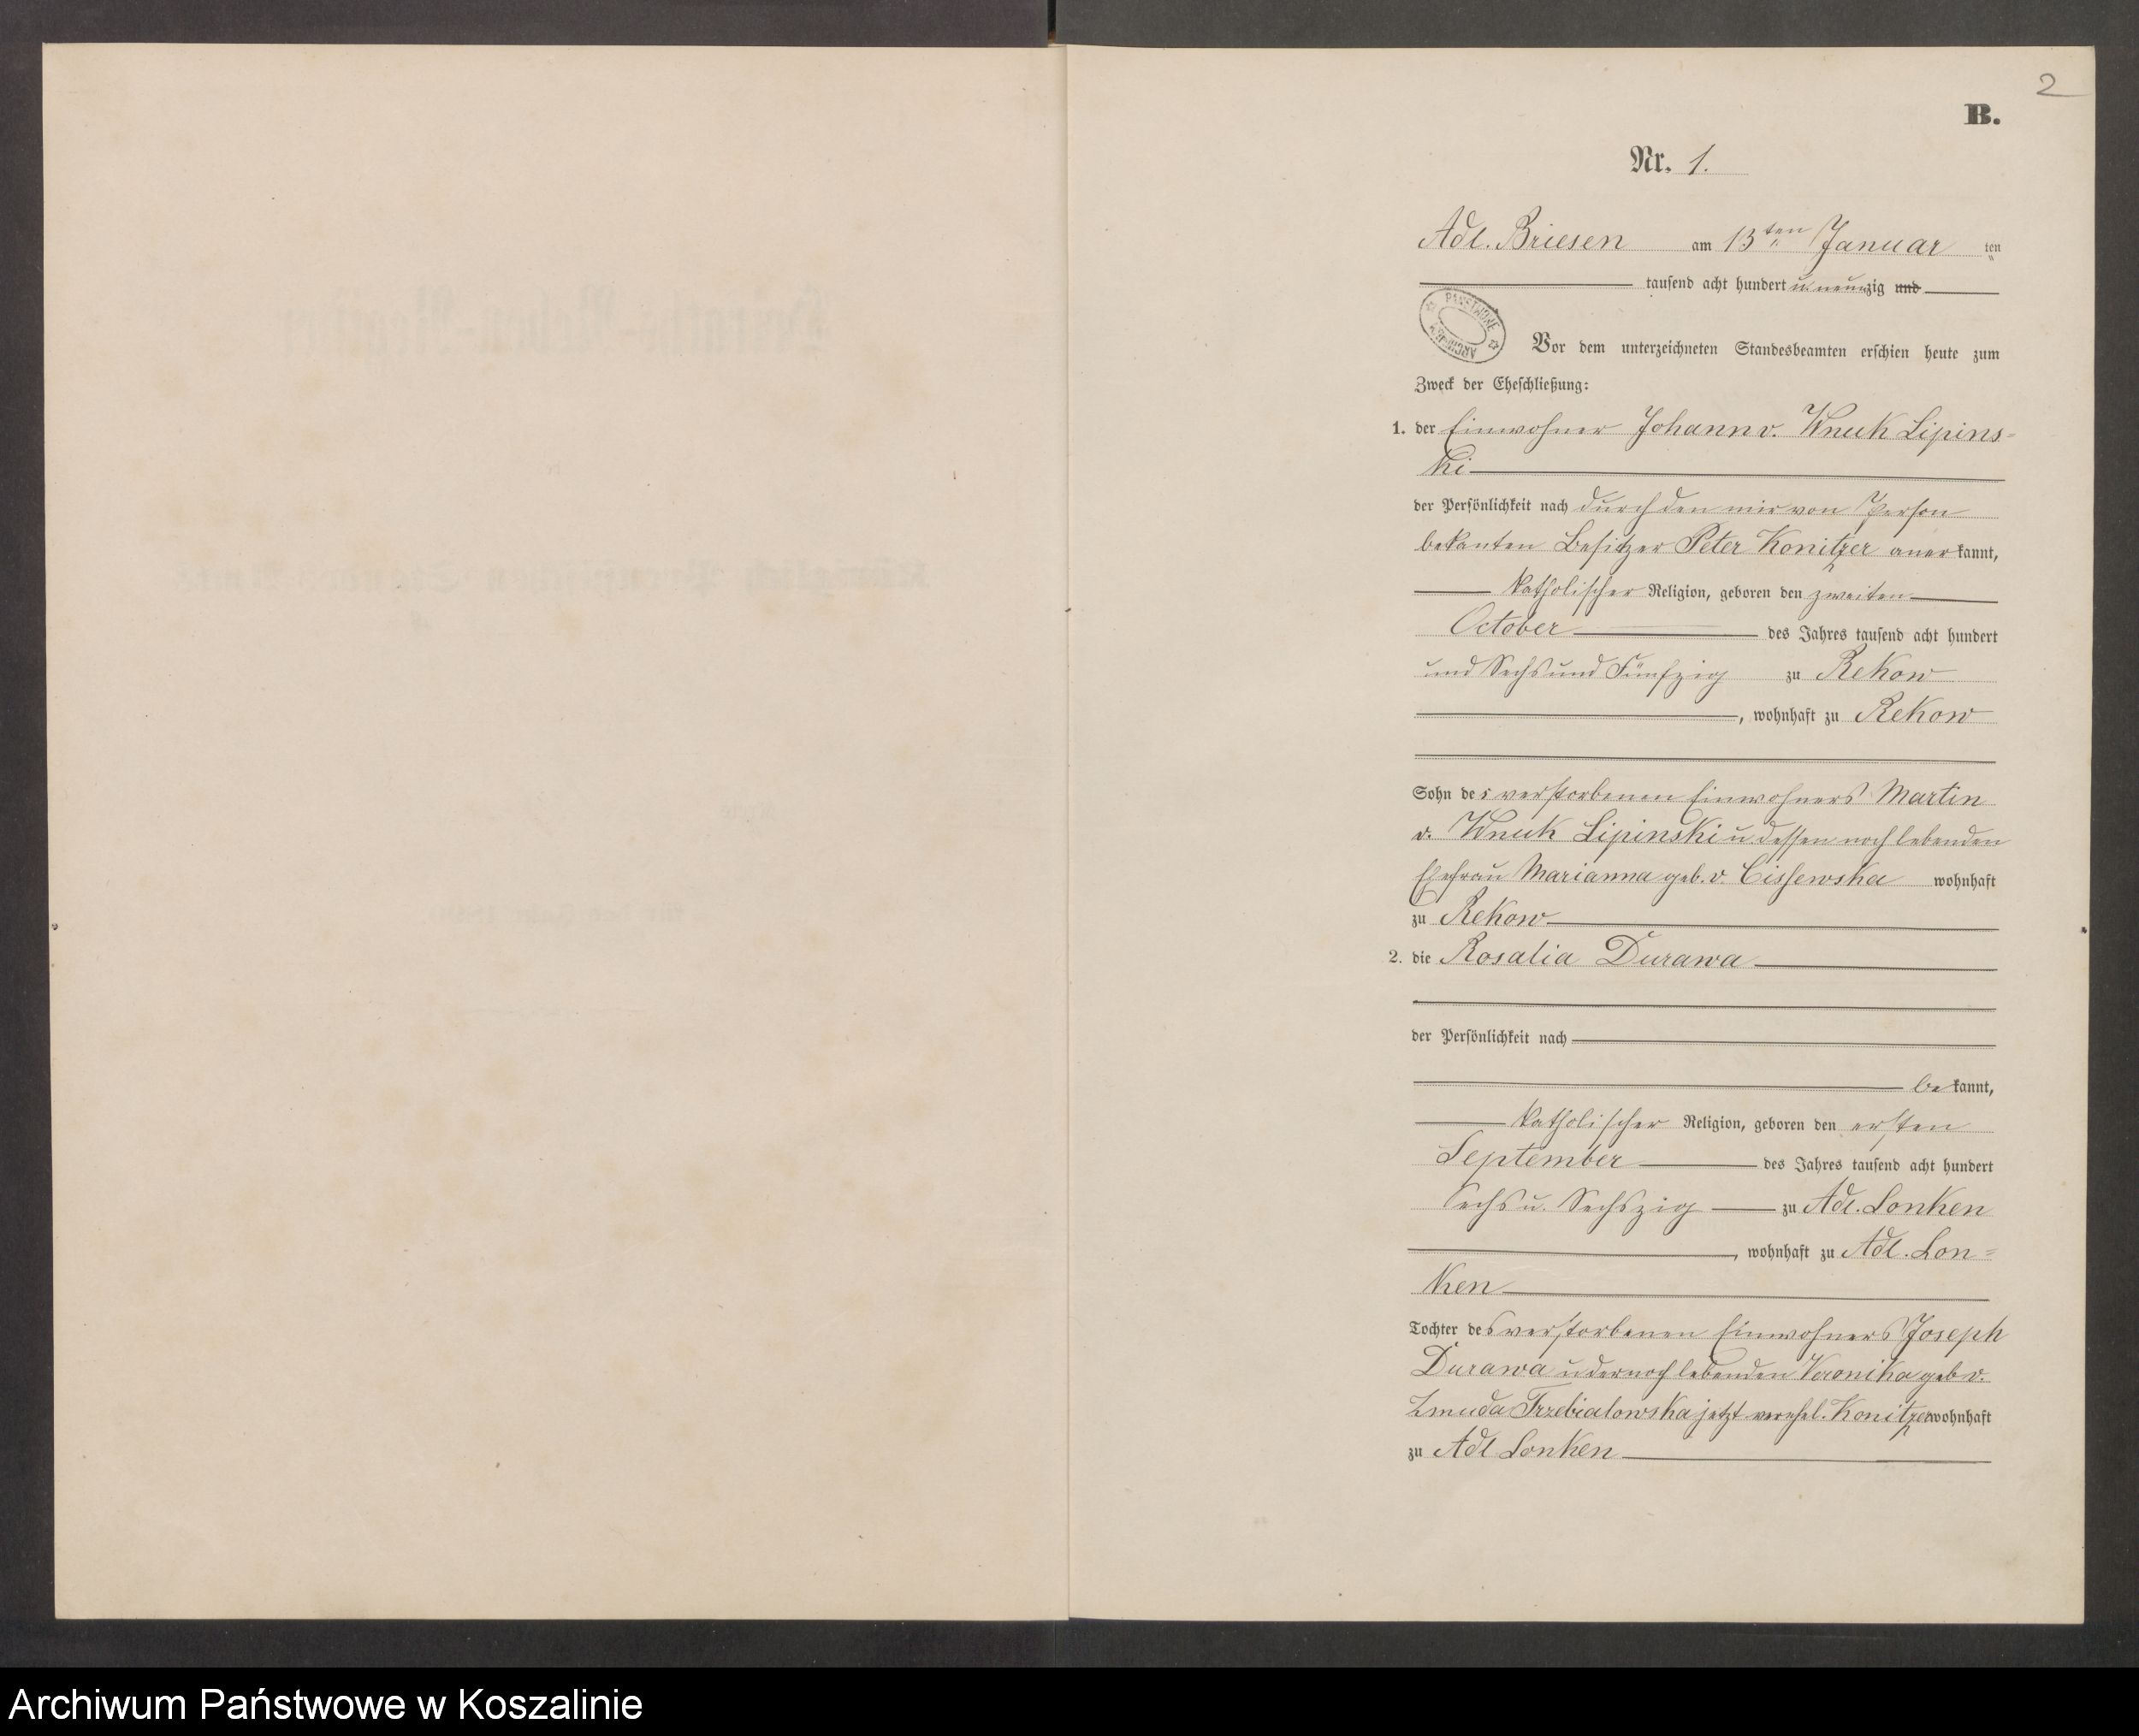 2
B.
Nr. 1.
Adl. Briesen am 13ten Januar ten
tausend acht hundert u. neunzig und
PAŃSTWOWE ARCHIWUM
Vor dem unterzeichneten Standesbeamten erschien heute zum
Zweck der Eheschließung:
1. der Einwohner Johann v. Wnuk Lipins-
ki
der Persönlichkeit nach durch den mir von Person
bekanten Besitzer Peter Konitzer anerkannt,
katholischer Religion, geboren den zweiten
October des Jahres tausend acht hundert
und Sechs und Fünfzig zu Rekow
, wohnhaft zu Rekow
Sohn des verstorbenen Einwohners Martin
v. Wnuk Lipinski u. dessen noch lebenden
Ehefrau Marianna geb. v. Cissewska wohnhaft
zu Rekow
2. die Rosalia Durawa
der Persönlichkeit nach
bekannt,
katholischer Religion, geboren den ersten
September des Jahres tausend acht hundert
Sechs u. Sechszig zu Adl. Lonken
, wohnhaft zu Adl. Lon=
ken
Tochter des verstorbenen Einwohners Joseph
Durawa u der noch lebenden Veronika geb v.
Zmuda Trzebialowska jetzt verehel. Konitzer wohnhaft
zu Adl Lonken
Archiwum Państwowe w Koszalinie